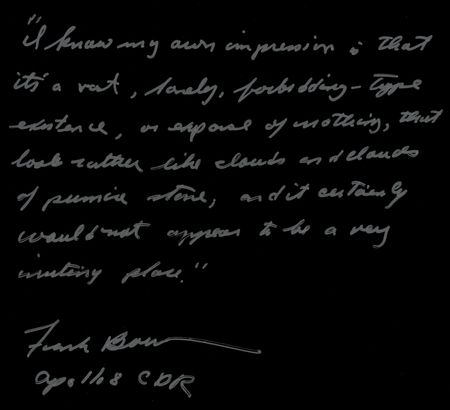 "I know my own impression is that
it's a vast, lonely, forbidding-type
existence, or expanse of nothing, that
look rather like clouds and clouds
of pumice stone, and it certainly
would not appear to be a very
inviting place."
Frank Borman
Apollo 8 CDR